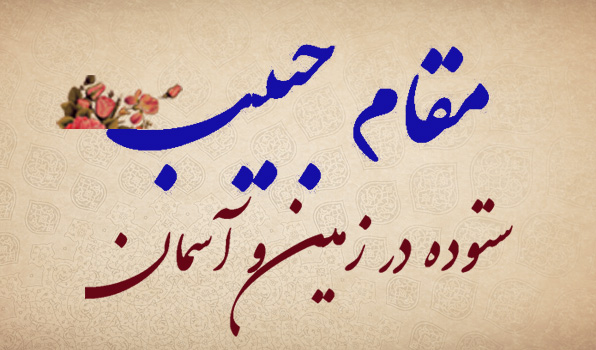 مقام حبیب
ستوده در زمین و آسمان